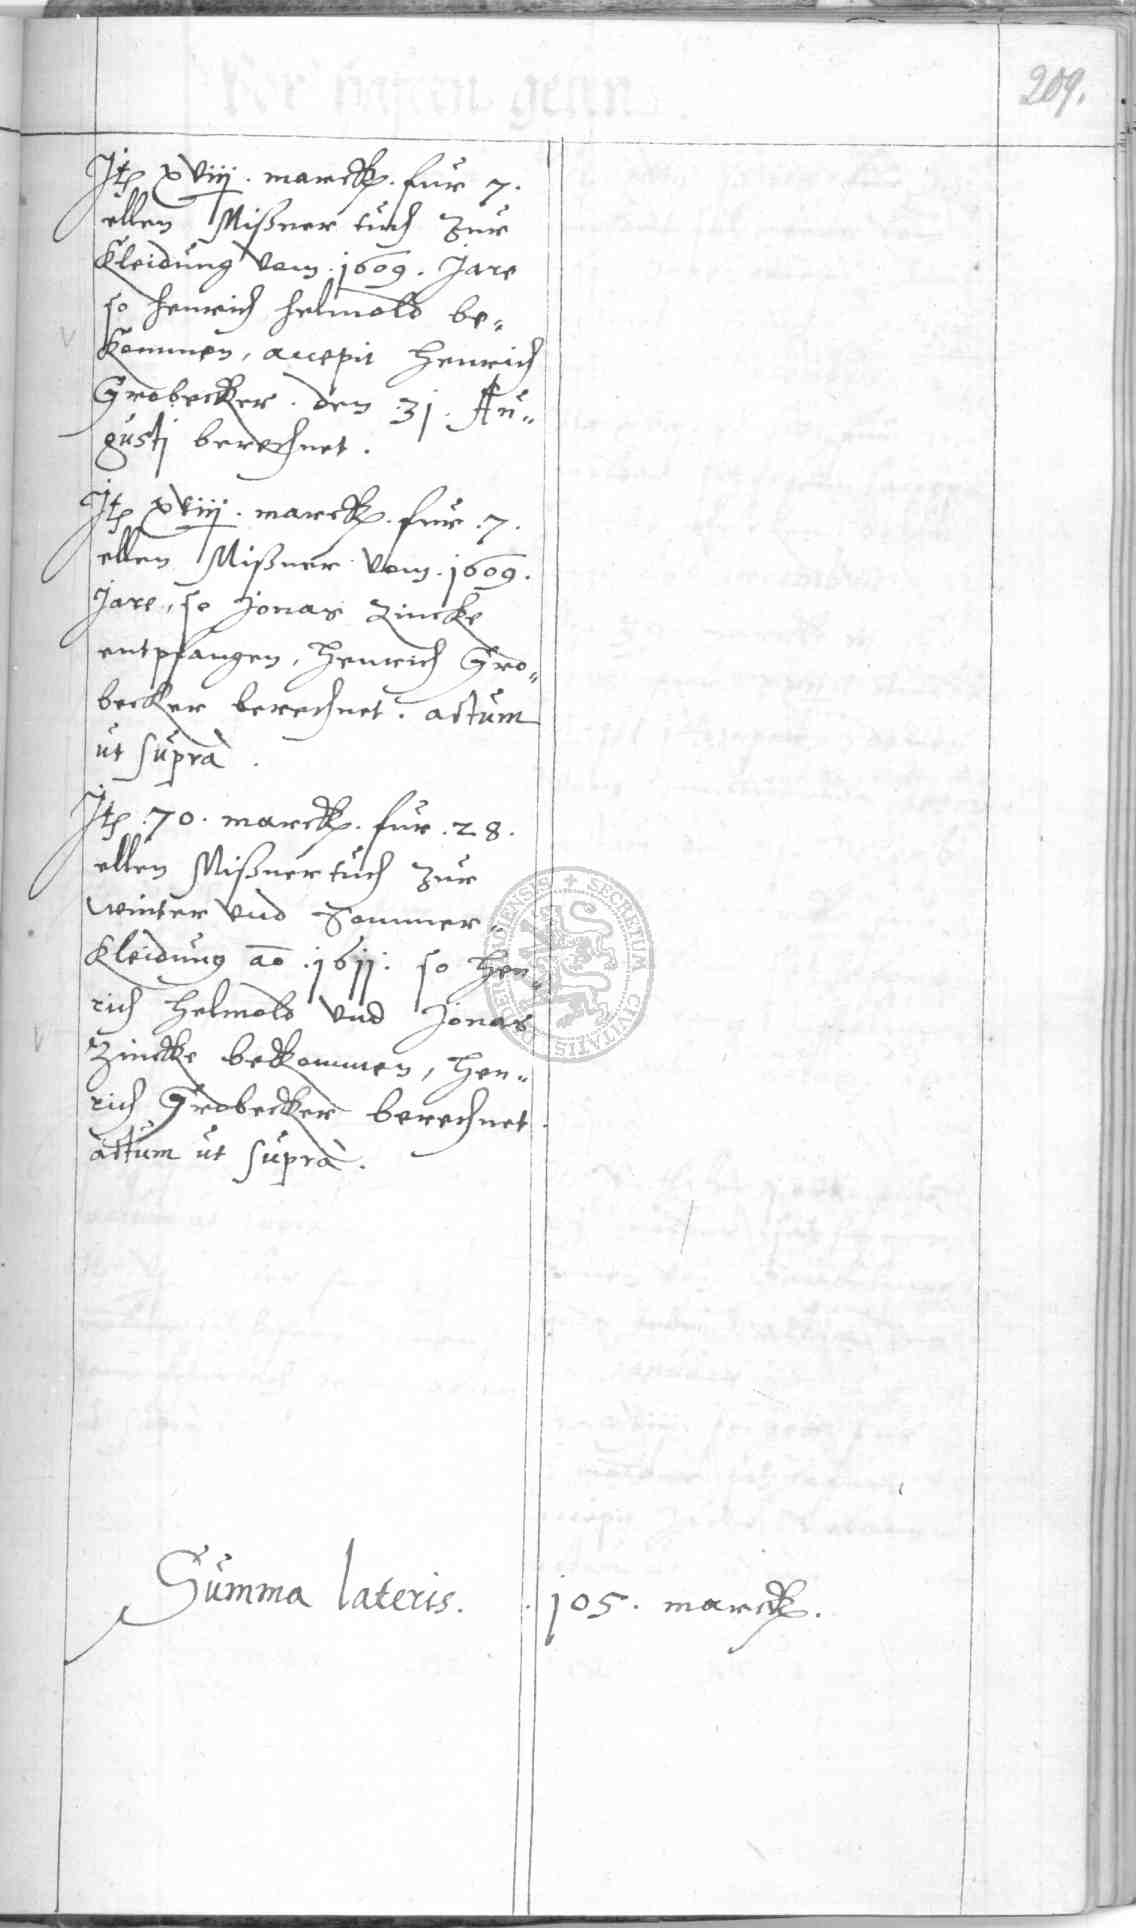 209.
Itē xviij. marck. fur 7.
ellen Mißner tuch zur
Kleidung vom .1609. Jare
so henrich helmold be-
kommen, accepit Henrich
Grobecker. den 31. Au-
gusti berechnet.
Itē xviij. marck. fur .7.
ellen Mißner vom .1609.
Jare, so Jonas Zincke
entpfangen, Henrich Gro-
becker berechnet. actum
ut suprà.
Itē .70. marck. fur .28.
ellen Mißner tuch zur
winter vnd Sommer-
kleidung aō .1611. so Hen-
rich Helmold vnd Jonas
Zincke bekommen, Hen-
rich Grobecker berechnet.
actum ut suprà.
SECRETUM CIVITATIS
Summa lateris. .105. marck.